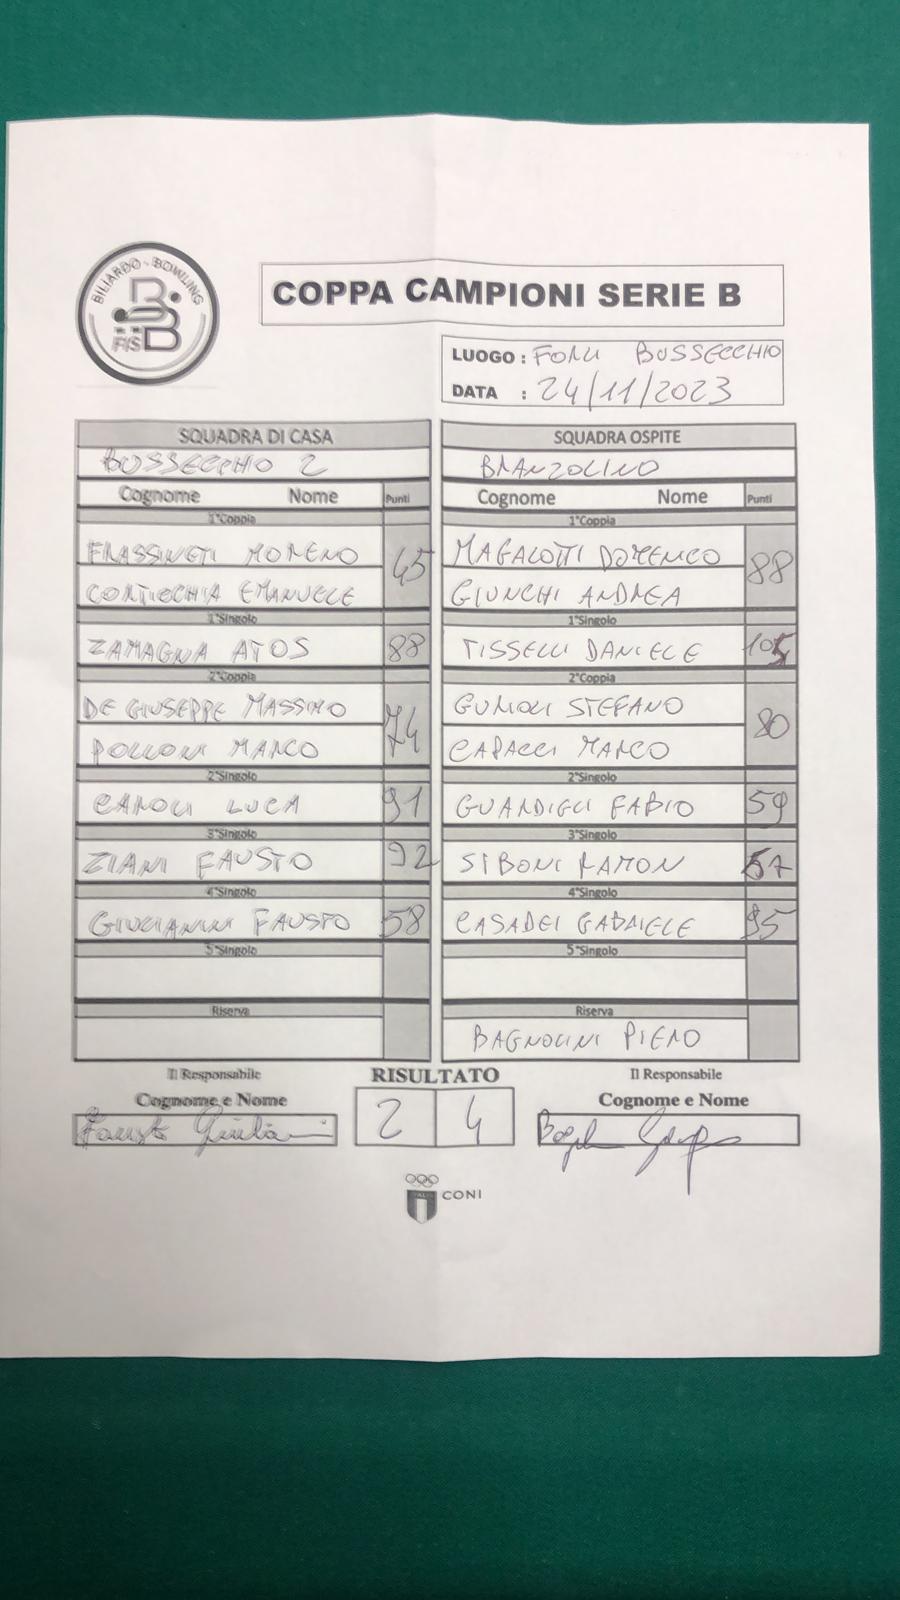 BILIARDO - BOWLING
FISBB
COPPA CAMPIONI SERIE B
LUOGO : FORLI BUSSECCHIO
DATA : 24/11/2023
SQUADRA DI CASA
BUSSECCHIO 2
Cognome Nome Punti
1°Coppia
FRASSINETI MORENO
45
CORTECCHIA EMANUELE
1°Singolo
ZAMAGNA ATOS 88
2°Coppia
DE GIUSEPPE MASSIMO
74
POLLONI MARCO
2°Singolo
CAROLI LUCA 91
3°Singolo
ZIANI FAUSTO 92
4°Singolo
GIULIANINI FAUSTO 58
5°Singolo
Riserva
SQUADRA OSPITE
BRANZOLINO
Cognome Nome Punti
1°Coppia
MAGALOTTI DOMENICO
88
GIUNCHI ANDREA
1°Singolo
TISSELLI DANIELE 105
2°Coppia
GUMOLI STEFANO
80
CAPACCI MARCO
2°Singolo
GUARDIGLI FABIO 59
3°Singolo
SIBONI RAMON 57
4°Singolo
CASADEI GABRIELE 95
5°Singolo
Riserva
BAGNOLINI PIERO
Il Responsabile
Cognome e Nome
Fausto
RISULTATO
2 4
Il Responsabile
Cognome e Nome
ITALIA
CONI